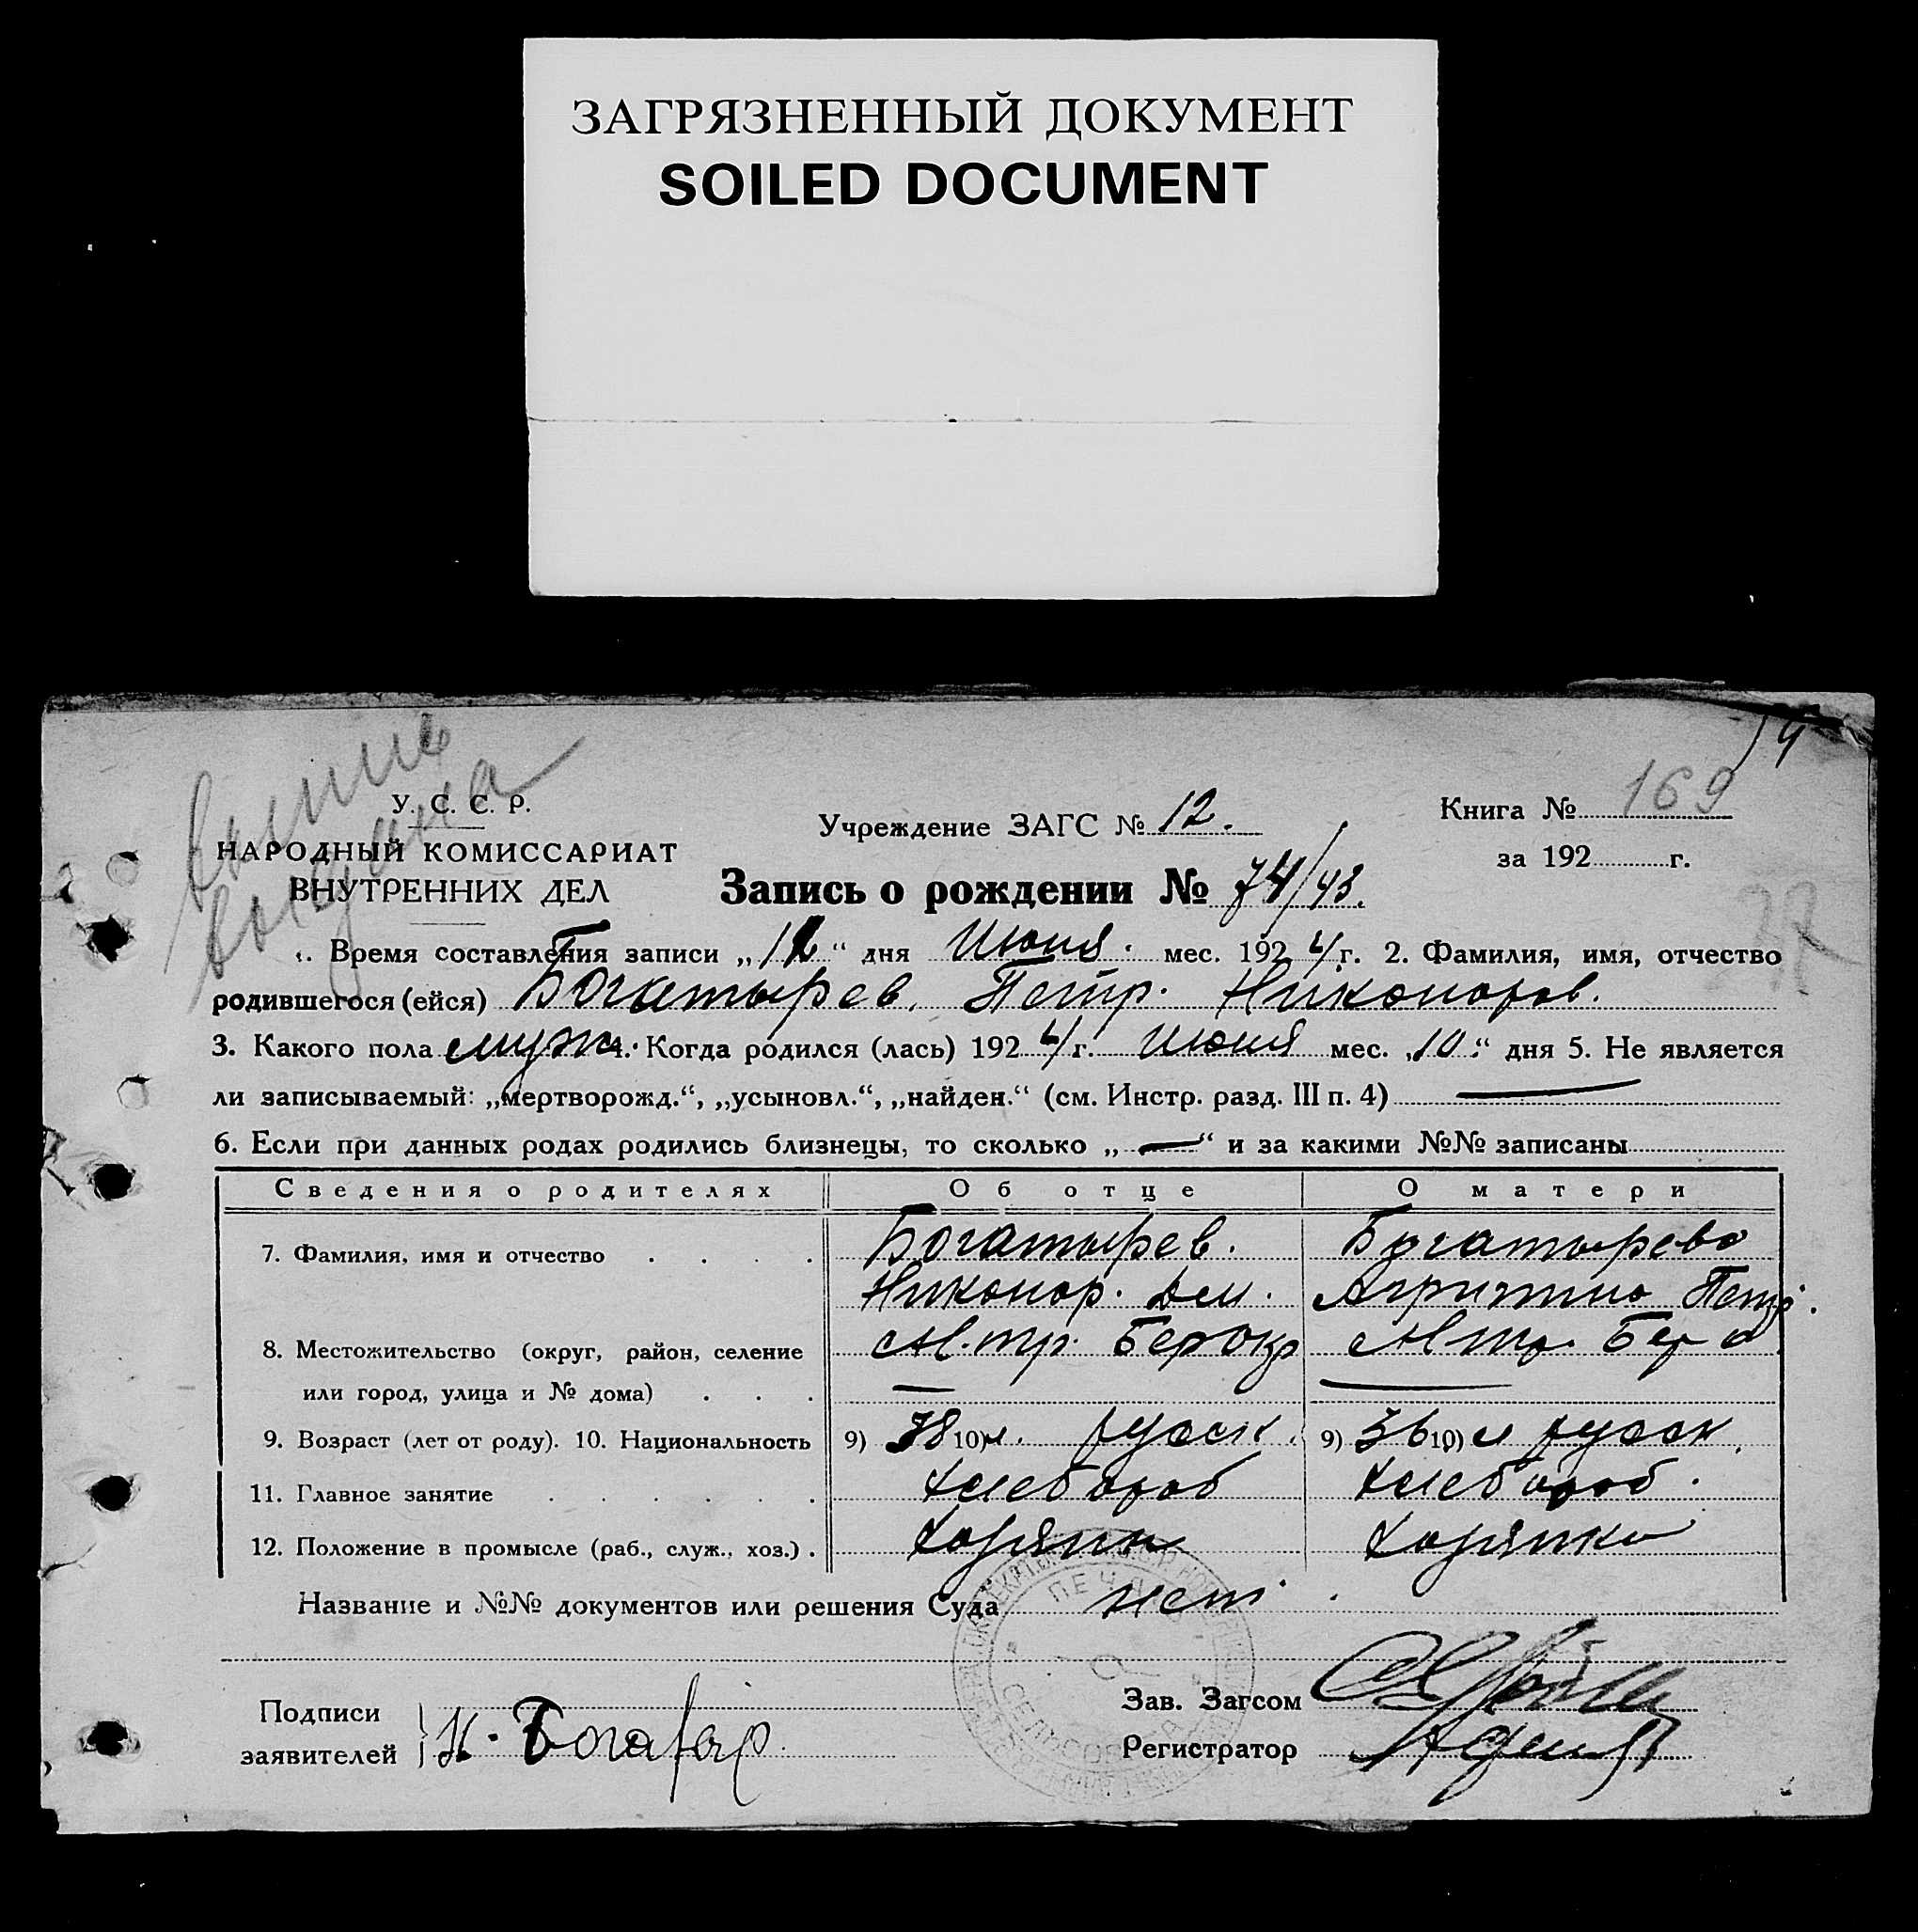 ЗАГРЯЗНЕННЫЙ ДОКУМЕНТ
SOILED DOCUMENT
У. С. С. Р.
НАРОДНЫЙ КОМИССАРИАТ
ВНУТРЕННИХ ДЕЛ
Учреждение ЗАГС № 12.
Книга № 169
за 192 г.
Запись о рождении № 74/43.
Время составления записи „ “ дня Июня. мес. 192 г. 2. Фамилия, имя, отчество
родившегося (ейся) Богатырев. Петр. Никоноров.
3. Какого пола муж 4. Когда родился (лась) 192 г. Июня мес. „10“ дня 5. Не является
ли записываемый: „мертворожд.“, „усыновл.“, „найден.“ (см. Инстр. разд. III п. 4) —
6. Если при данных родах родились близнецы, то сколько „—“ и за какими №№ записаны
Сведения о родителях Об отце О матери
7. Фамилия, имя и отчество Богатырев. Богатырева
Никонор. Дем. Петр.
8. Местожительство (округ, район, селение М.тр. Бер окр М тр. Бер
или город, улица и № дома) — —
9. Возраст (лет от роду). 10. Национальность 9) 38 10) л. русск. 9) 36 10) л русск.
11. Главное занятие хлебороб хлебороб.
12. Положение в промысле (раб., служ., хоз.) хозяин хозяйка
Название и №№ документов или решения Суда нет
Подписи
заявителей Н. Богатыр
Зав. Загсом
Регистратор